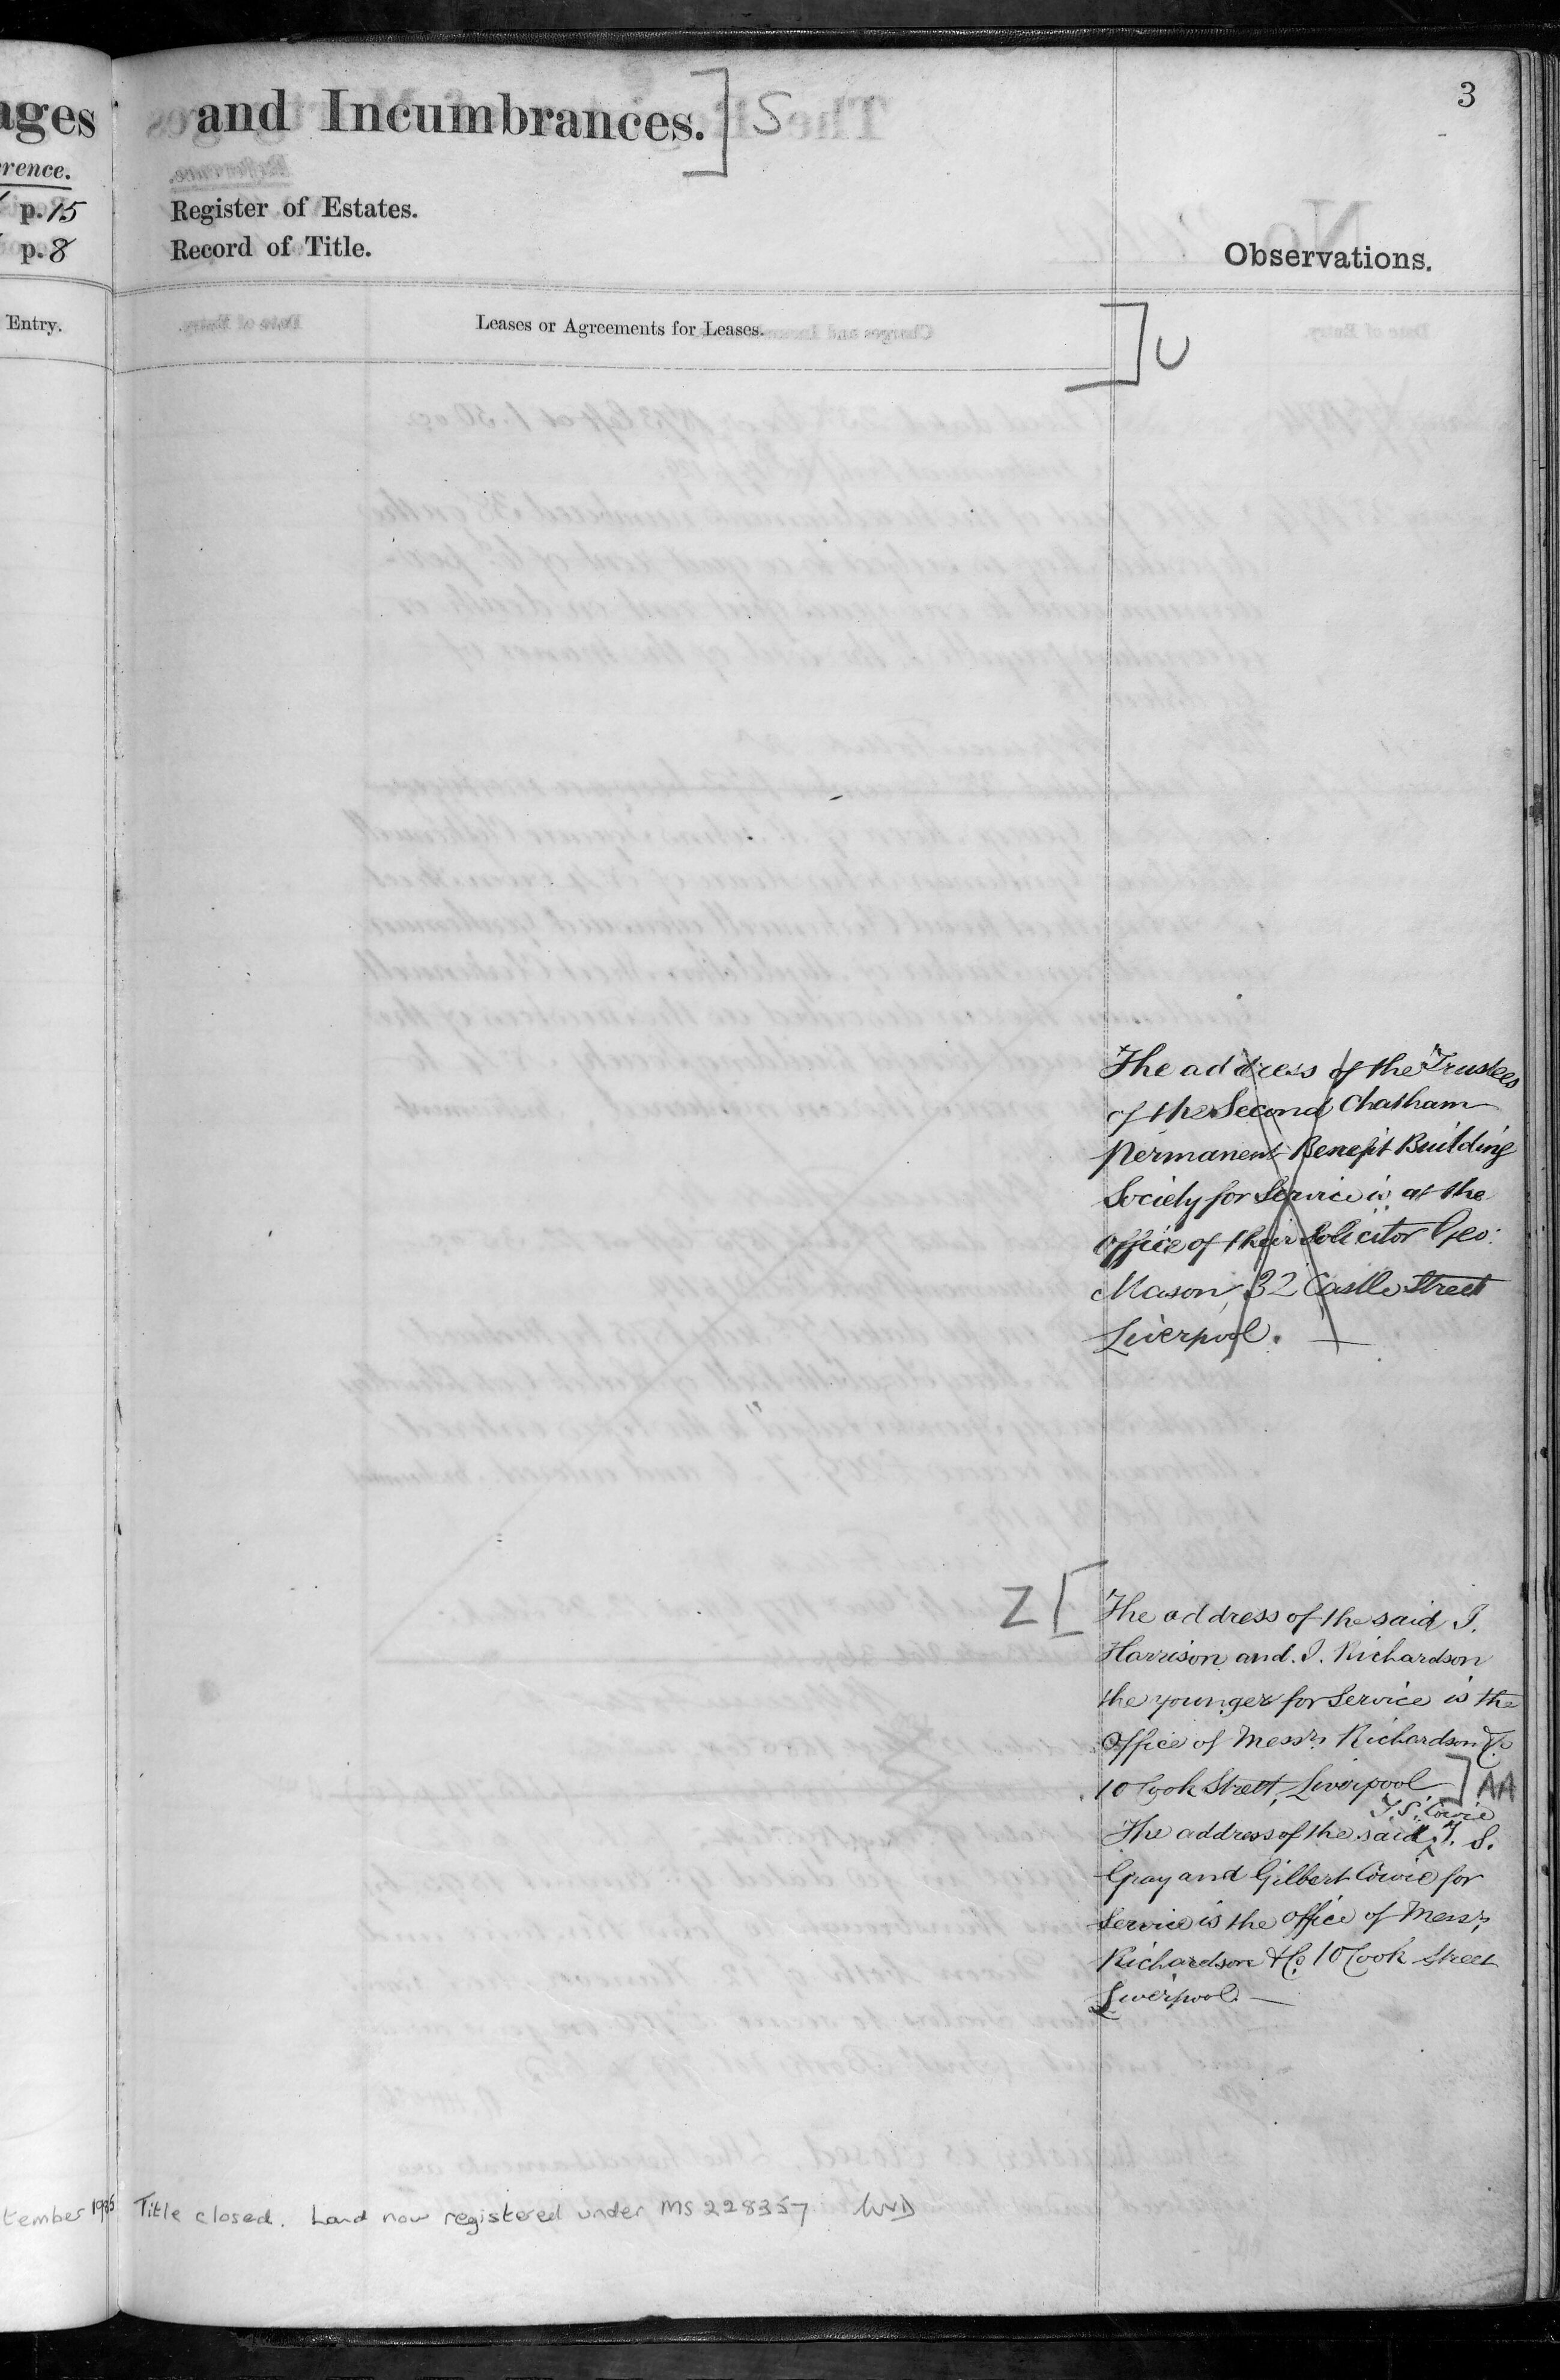 ages
rence.
p. 15
p. 8
Entry.
and Incumbrances. ] S
3
Register of Estates.
Record of Title.
Observations.
Leases or Agreements for Leases.
] U
The address of the Trustees
of the Second Chatham
Permanent Benefit Building
Society for Service is at the
Office of their Solicitor Geo:
Mason, 32 Castle Street
Liverpool. —
Z [ The address of the said J.
Harrison and J. Richardson
the younger for Service is the
Office of Messrs Richardson & Co
10 Cook Street, Liverpool ] AA
T. S. Cowie
The address of the said ^ J. S.
Gray and Gilbert Cowie for
Service is the office of Messrs
Richardson & Co 10 Cook Street
Liverpool. —
tember 1985 Title closed. Land now registered under MS 228357